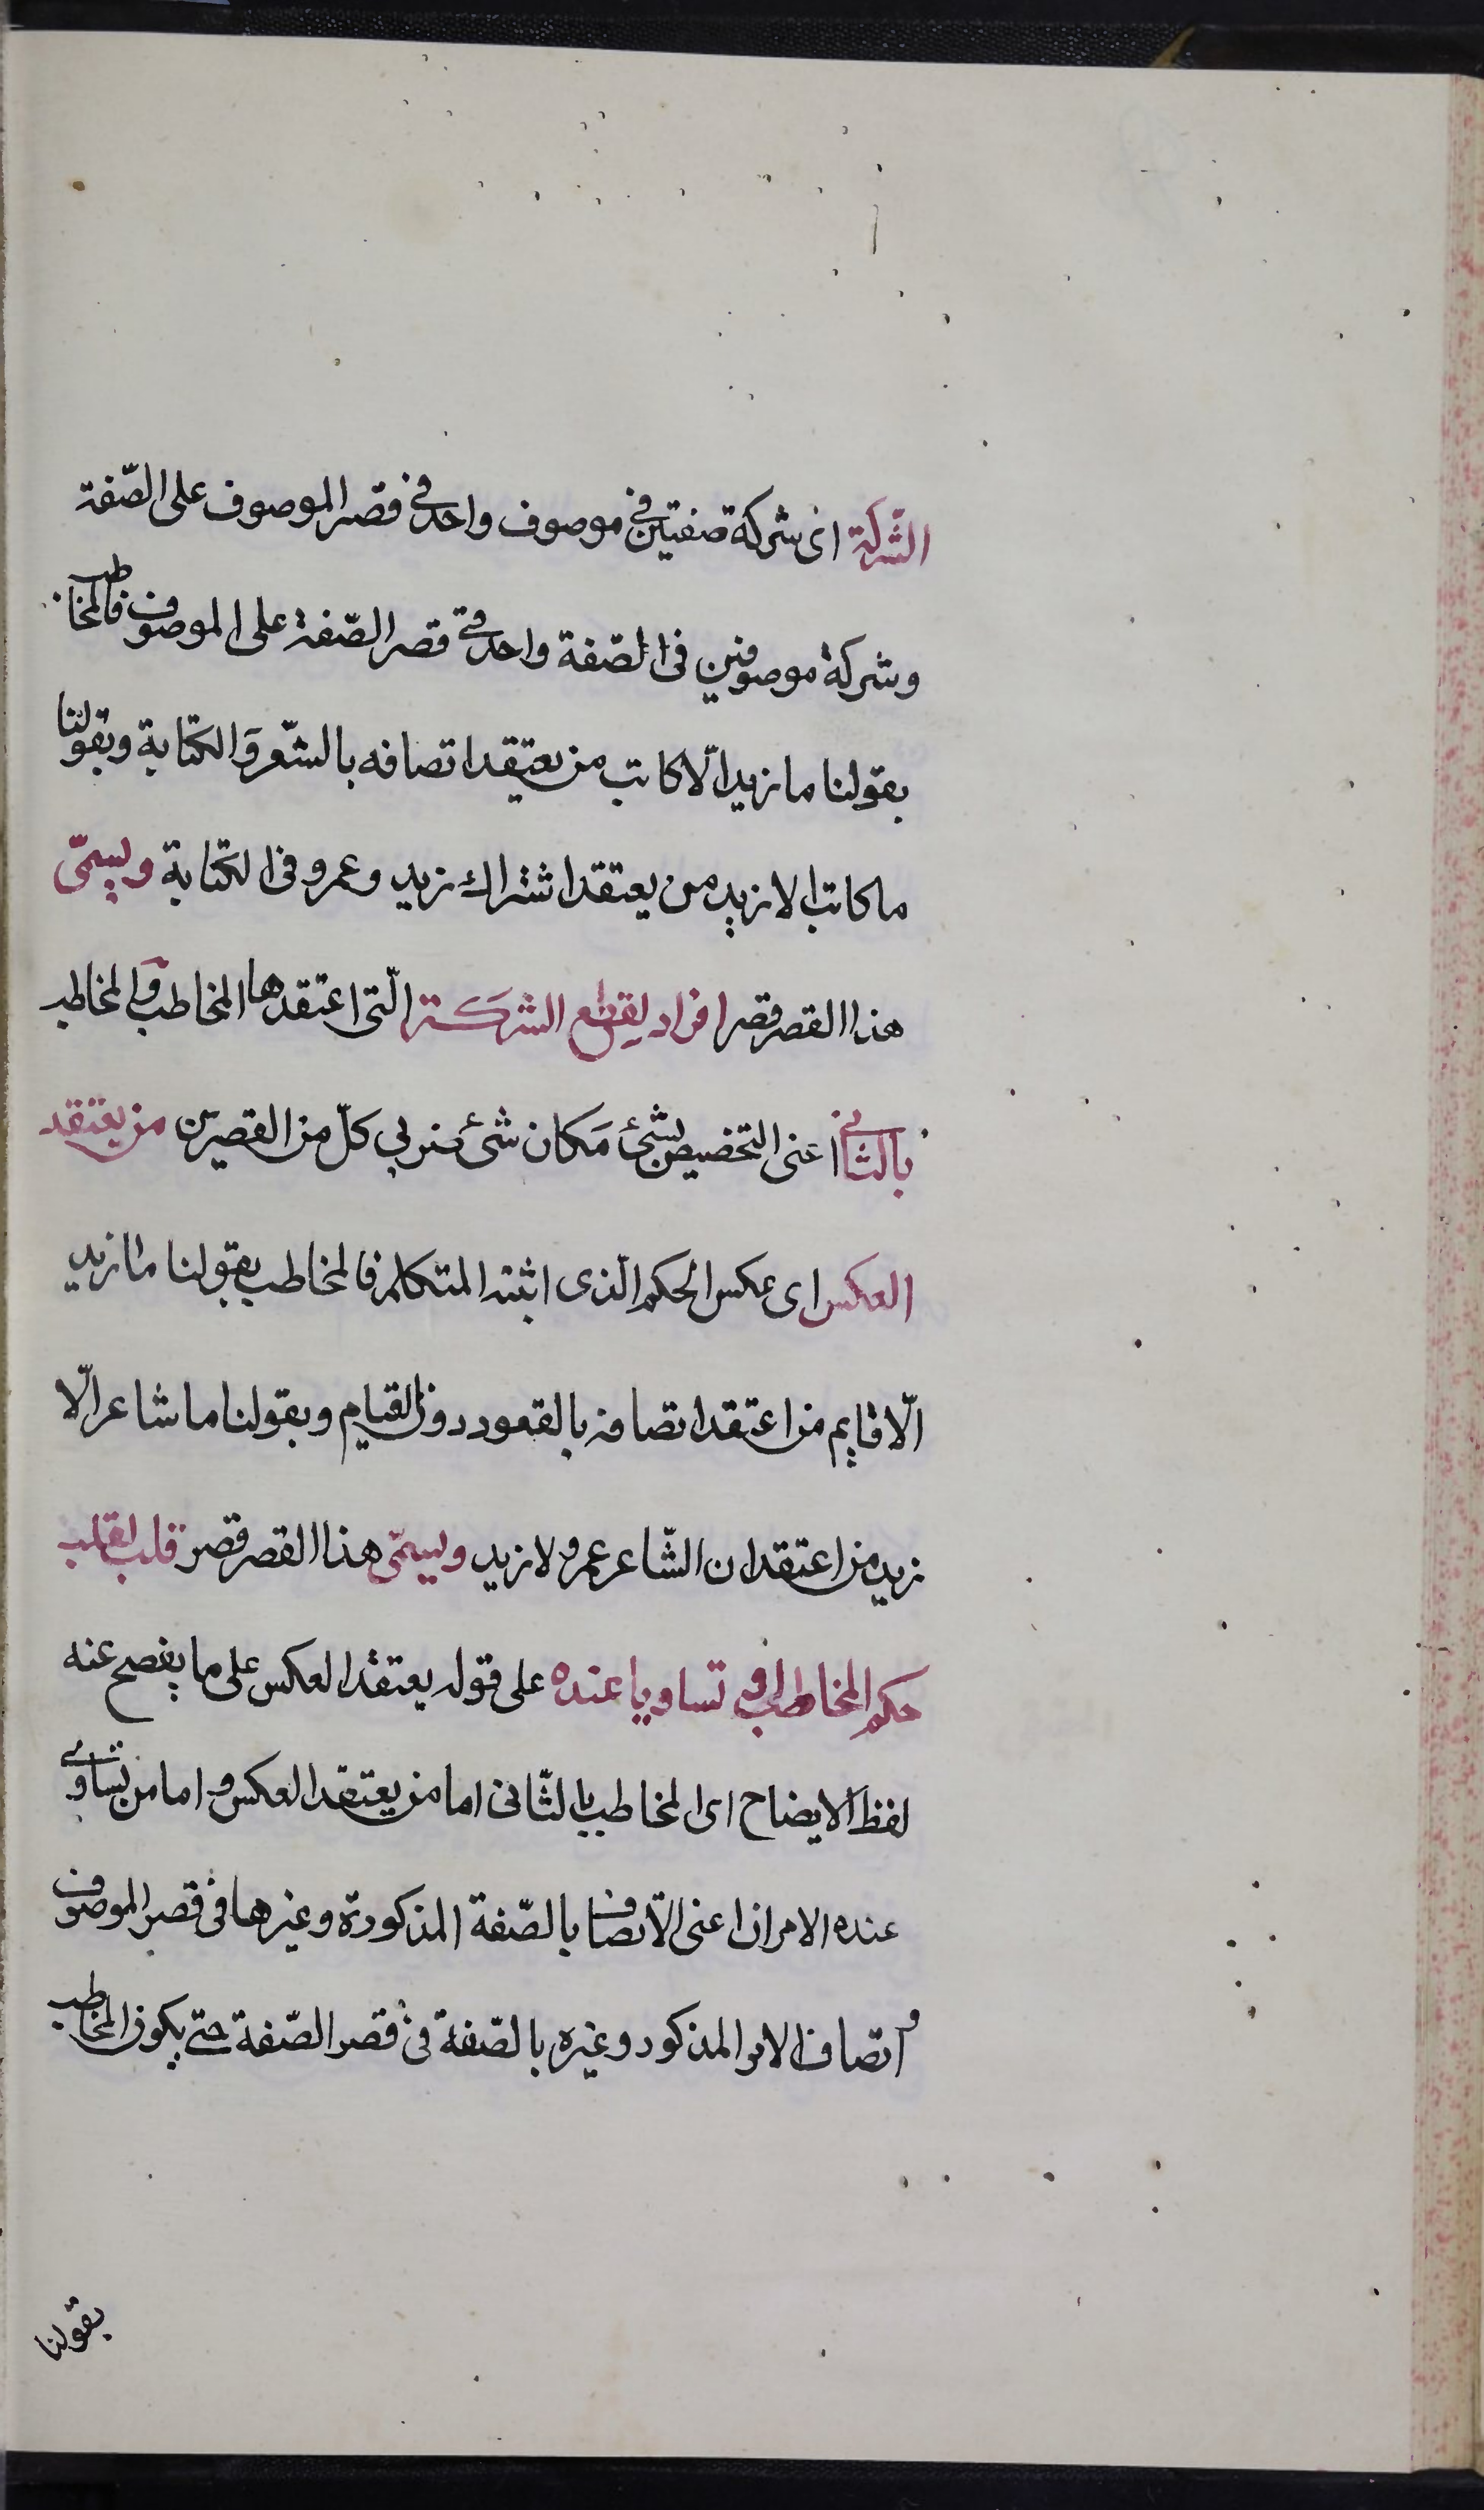 الشّركة اى شركة صفتين فى موصوف واحد فى قصر الموصوف على الصّفة
وشركة موصوفين فى الصّفة واحدة فى قصر الصّفة على الموصوف فالمخاطب
بقولنا ما زيد الّا كاتب من يعتقد اتصافه بالشّعر وَالكتابة وبقولنا
ما كاتب الا زيد من يعتقد اشتراك زيد وعمرو فى الكتابة ويسمّى
هذا القصر قصر افراد لقطع الشركة الّتى اعتقدها المخاطب وَالمخاطب
بالثانى اعنى التخصيص بشئ مَكان شئ من كلّ من القصرين من يعتقد
العكس اى عكس الحكم الّذى اثبته المتكلم فالمخاطب بقولنا ما زيد
الّا قايم من اعتقد اتصافه بالقعود دون القيام وبقولنا ما شاعر الّا
زيد من اعتقد ان الشّاعر عمرو لا زيد ويسمّى هذا القصر قصر قلب لقلب
حكم المخاطب او تساويا عنده على قوله يعتقد العكس على ما يفصح عنه
لفظ الايضاح اى المخاطب بالثّانى اما من يعتقد العكس واما من تساوى
عنده الامران اعنى الاتّصاف بالصّفة المذكورة وغيرها فى قصر الموصوف
واتّصاف الامر المذكور وغيره بالصّفة فى قصر الصّفة حتى يكون المخاطب
بقولنا